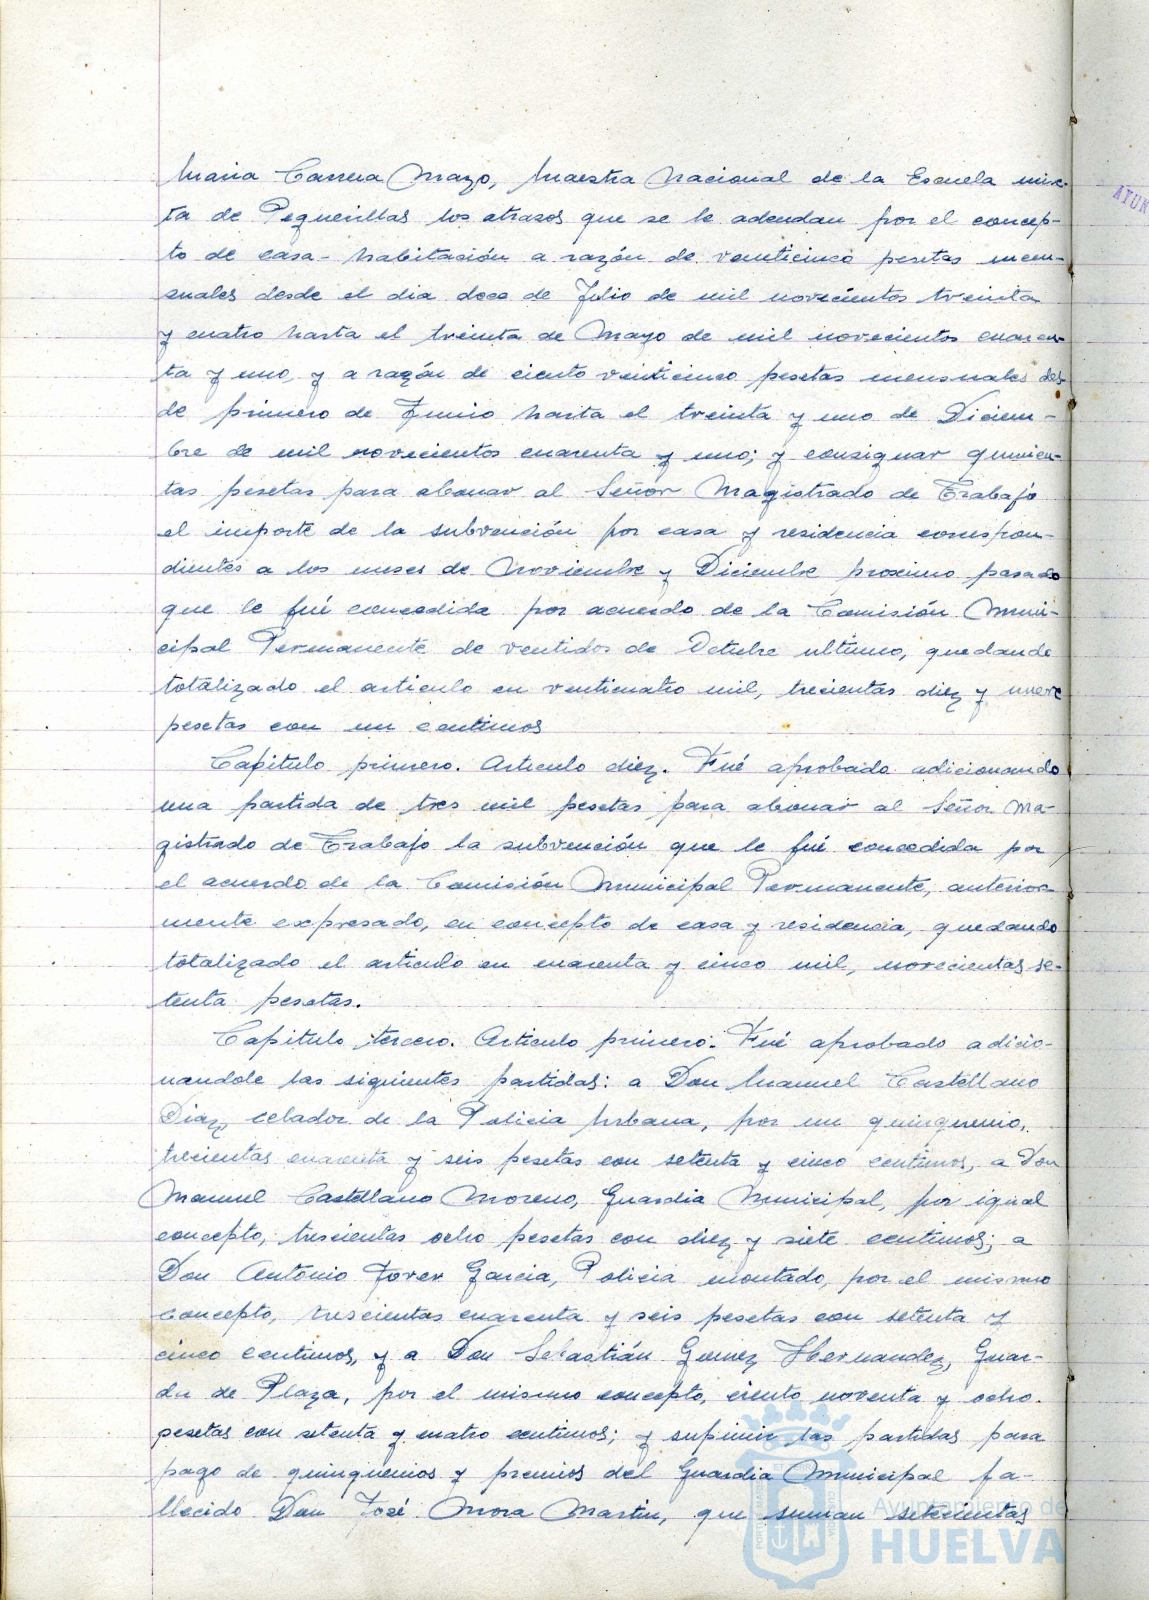 Maria Carrera Mazo, Maestra Nacional de la Escuela mix-
ta de Peguerillas los atrasos que se le adeudan por el concep-
to de casa-habitación a razón de veinticinco pesetas men-
suales desde el dia doce de Julio de mil novecientos treinta
y cuatro hasta el treinta de Mayo de mil novecientos cuaren-
ta y uno, y a razón de ciento veinticinco pesetas mensuales des-
de primero de Junio hasta el treinta y uno de Diciem-
bre de mil novecientos cuarenta y uno; y consignar quinien-
tas pesetas para abonar al Señor Magistrado de Trabajo
el importe de la subvención por casa y residencia correspon-
dientes a los meses de Noviembre y Diciembre proximo pasado
que le fué concedida por acuerdo de la Comisión Muni-
cipal Permanente de ventidos de Octubre ultimo, quedando
totalizado el articulo en venticuatro mil, trecientas diez y nueve
pesetas con un centimos
Capitulo primero. Articulo diez. Fué aprobado adicionando
una partida de tres mil pesetas para abonar al Señor Ma-
gistrado de Trabajo la subvención que le fué concedida por
el acuerdo de la Comisión Municipal Permanente, anterior-
mente expresado, en concepto de casa y residencia, quedando
totalizado el articulo en cuarenta y cinco mil, novecientas se-
tenta pesetas.
Capitulo tercero. Articulo primero. Fué aprobado adicio-
nandole las siguientes partidas: a Don Manuel Castellano
Diaz, celador de la Policia Urbana, por un quinquenio,
trecientas cuarenta y seis pesetas con setenta y cinco centimos, a Don
Manuel Castellano Moreno, Guardia Municipal, por igual
concepto, trescientas ocho pesetas con diez y siete centimos; a
Don Antonio Jover Garcia, Policia montado, por el mismo
concepto, trescientas cuarenta y seis pesetas con setenta y
cinco centimos, y a Don Sebastián Gomez Hernandez, Guar-
dia de Plaza, por el mismo concepto, ciento noventa y ocho
pesetas con setenta y cuatro centimos; y suprimir las partidas para
pago de quinquenios y premios del Guardia Municipal fa-
llecido Don José Mora Martin, que suman setecientas
AYUN
Ayuntamiento de
HUELVA